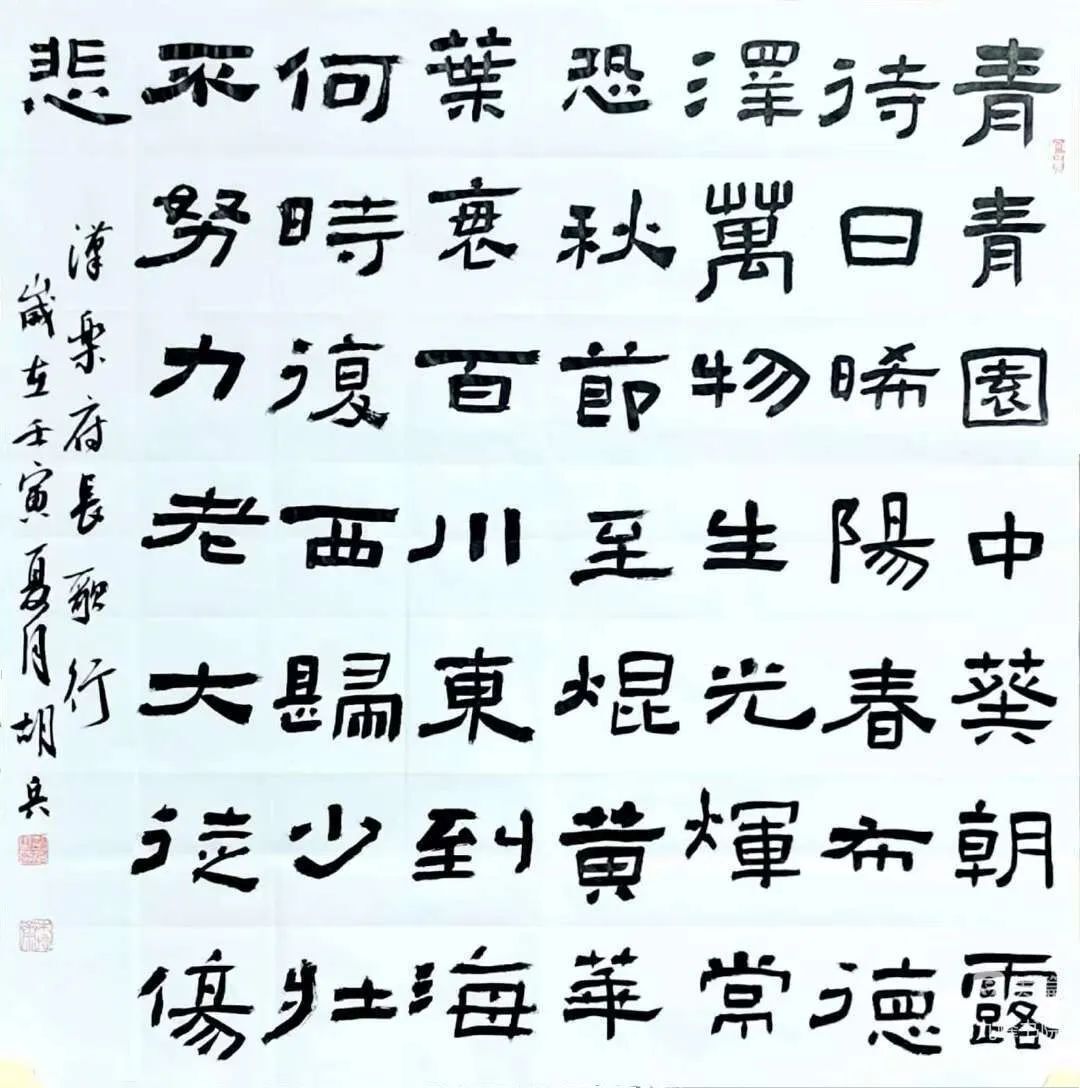 青青園中葵朝露
待日晞陽春布德
澤萬物生光輝常
恐秋節至焜黃華
葉衰百川東到海
何時復西歸少壯
不努力老大徒傷
悲
漢樂府長歌行
歲在壬寅夏月胡兵